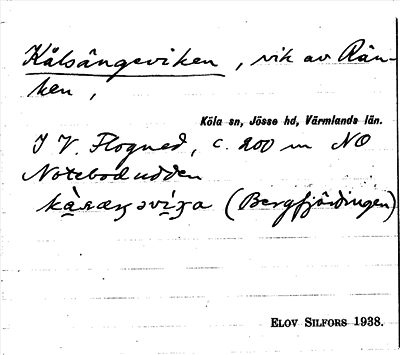 Kålsängeviken, vik av Rän-
ken,
Köla sn, Jösse hd, Värmlands län.
I V. Flogned, c. 200 m NO
Notebodudden
(Bergfjärdingen)
ELOV SILFORS 1938.